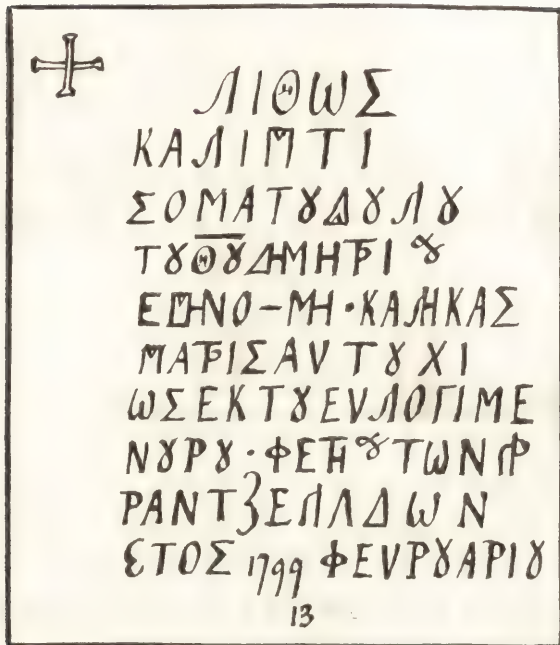 ΛΙΘΩΣ
ΚΑΛΙΠΤΙ
ΣΟΜΑΤȢΔȢΛȢ
ΤȢΘȢΔΗΜΗΤΡΙȢ
ΚΑΛΗΚΑΣ
ΜΑΤΡΙΣΑΥΤȢΧΙ
ΩΣΕΚΤȢΕΥΛΟΓΙΜΕ
ΝȢΡȢ·ΦΕΤΗȢΤΩΝ
ΕΤΟΣ 1799 ΦΕΥΡȢΑΡΙȢ
13